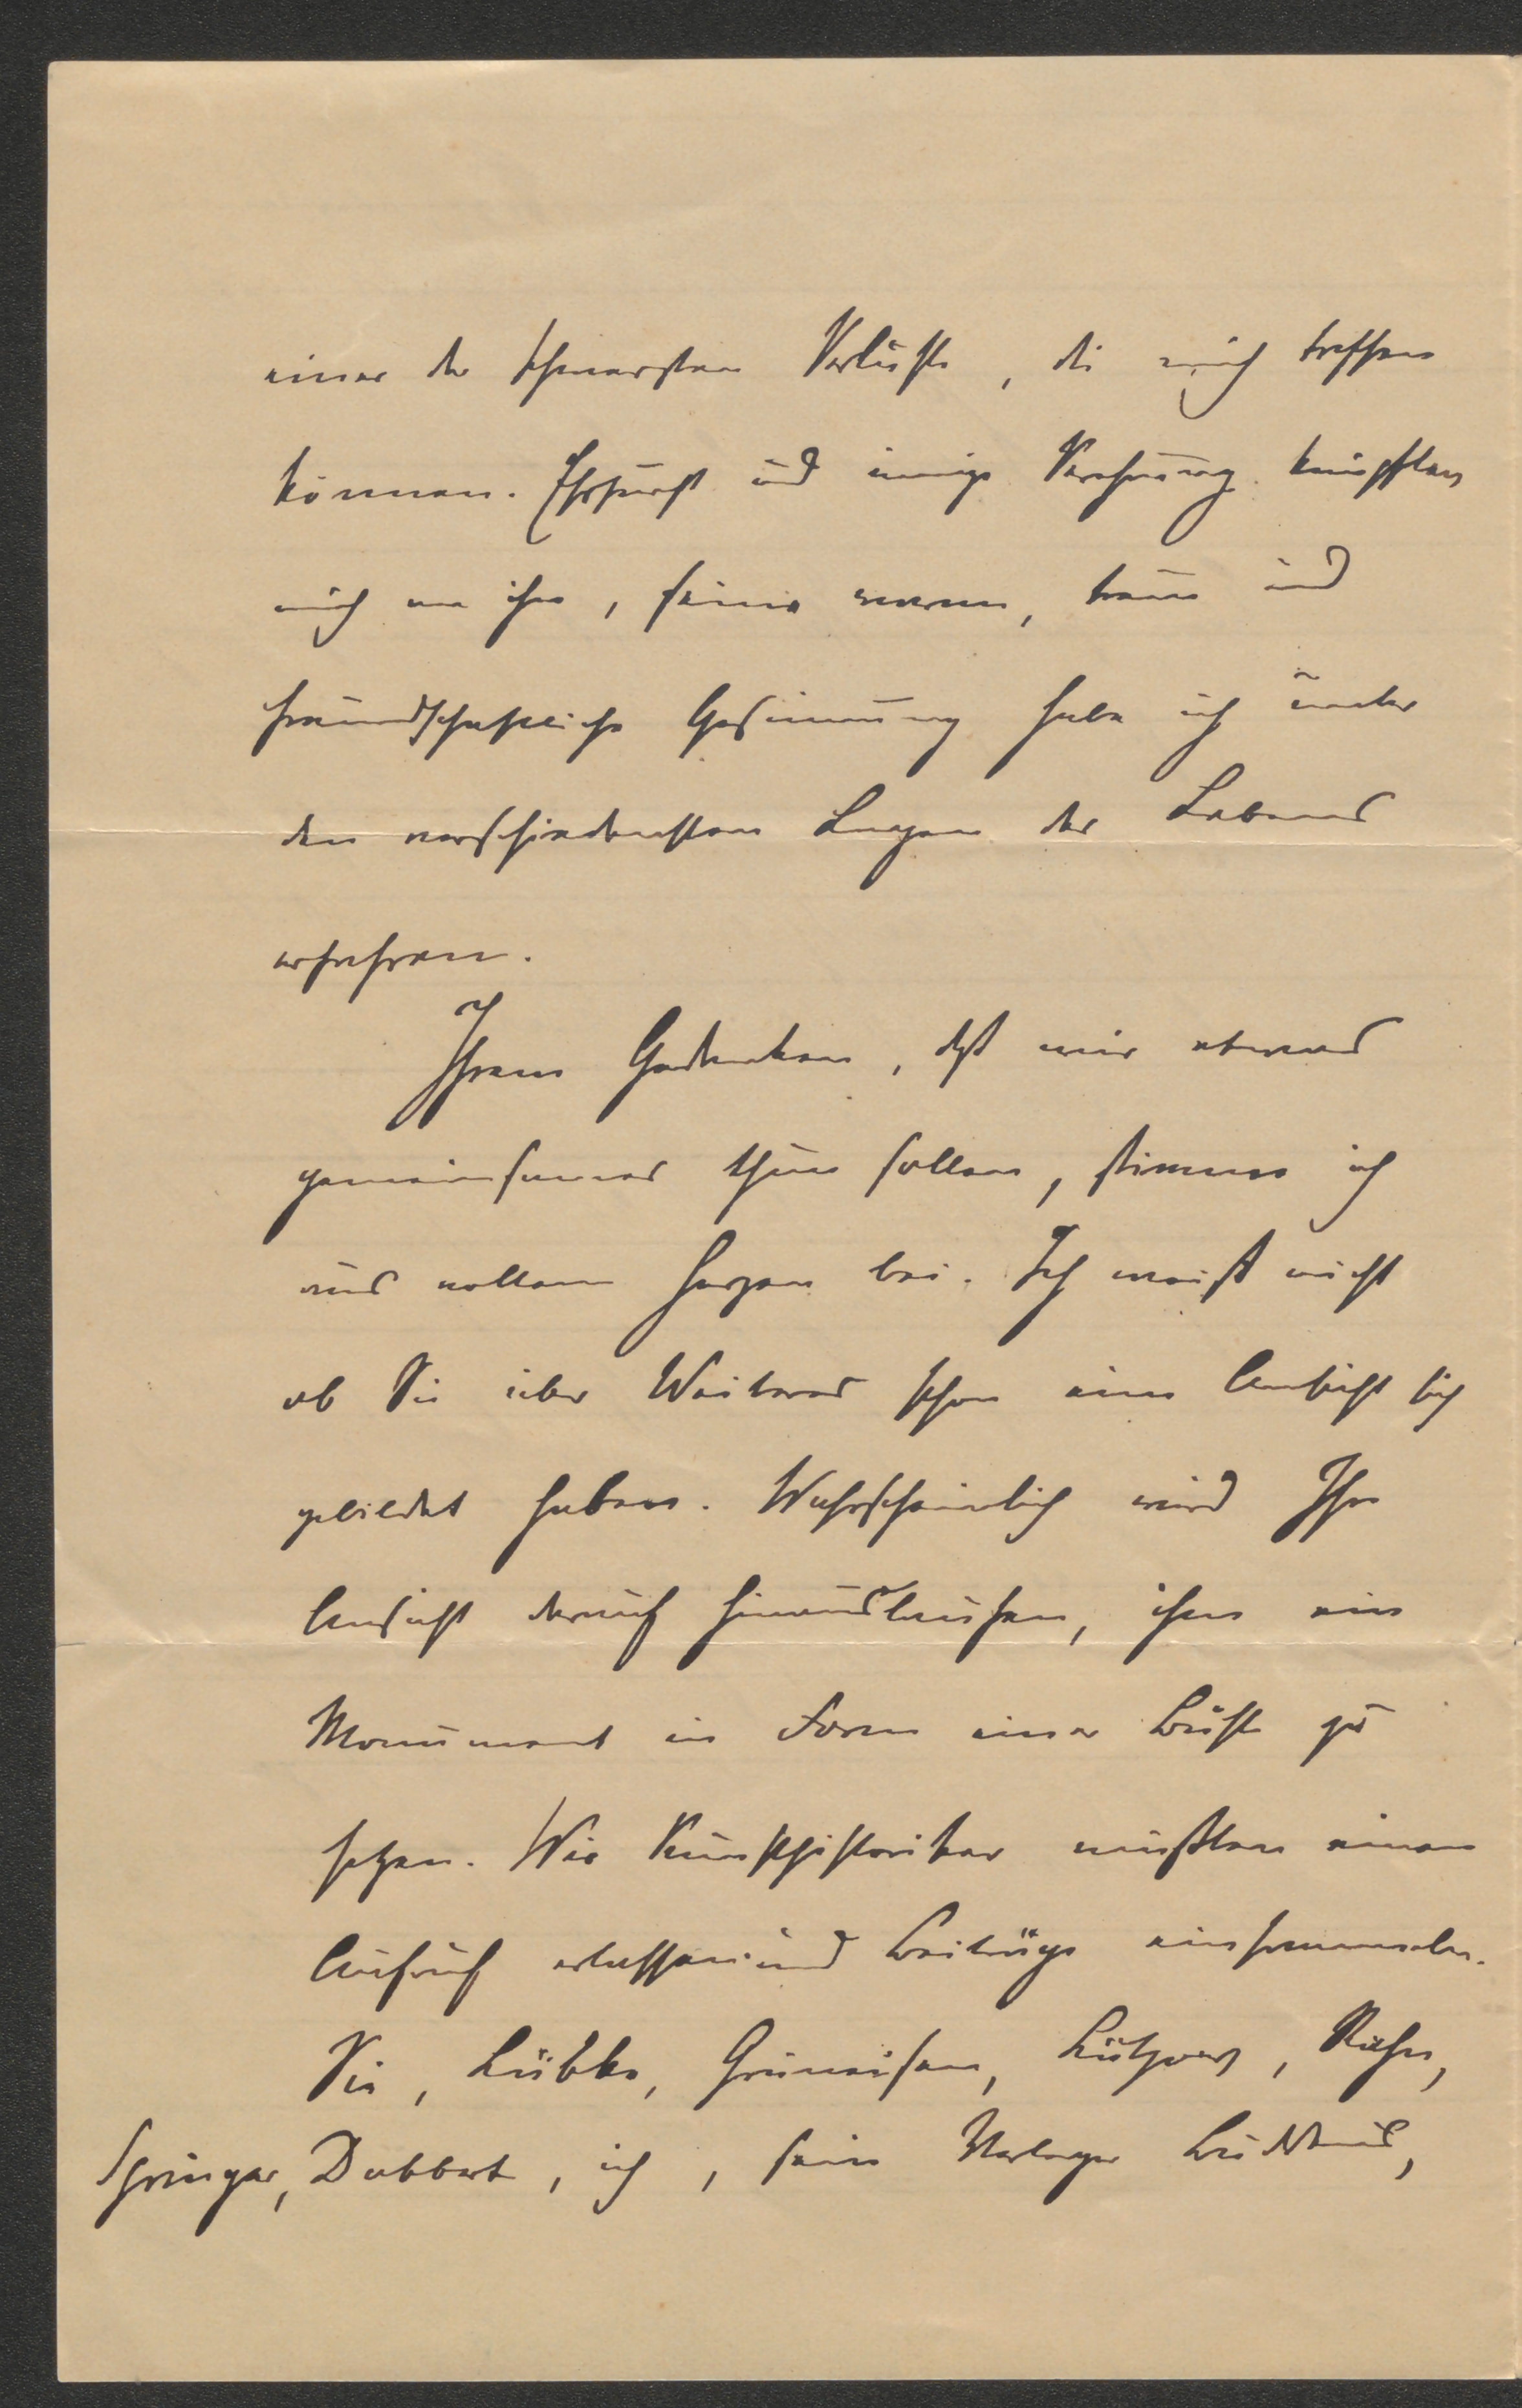 einer der schwersten Verluste, die mich treffen
können. Ehrfurcht und innige Verehrung knüpften
mich an ihn, seine warme, treue und
freundschaftliche Gesinnung habe ich unter
den verschiedensten Lagen des Lebens
erfahren.
Ihrem Gedanken, daß wir etwas
gemeinsames thun sollen, stimme ich
aus vollem Herzen bei. Ich weiß nicht
ob Sie über Weiteres schon eine Ansicht sich
gebildet haben. Wahrscheinlich wird Ihre
Ansicht darauf hinauslaufen, ihm ein
Monument in Form einer Büste zu
setzen. Wir Kunsthistoriker müßten einen
Aufruf erlassen und Beiträge einsammeln.
Sie, Lübke, Grüneisen, Lützow, Rahn,
Springer, Dobbert, ich, sein Verleger